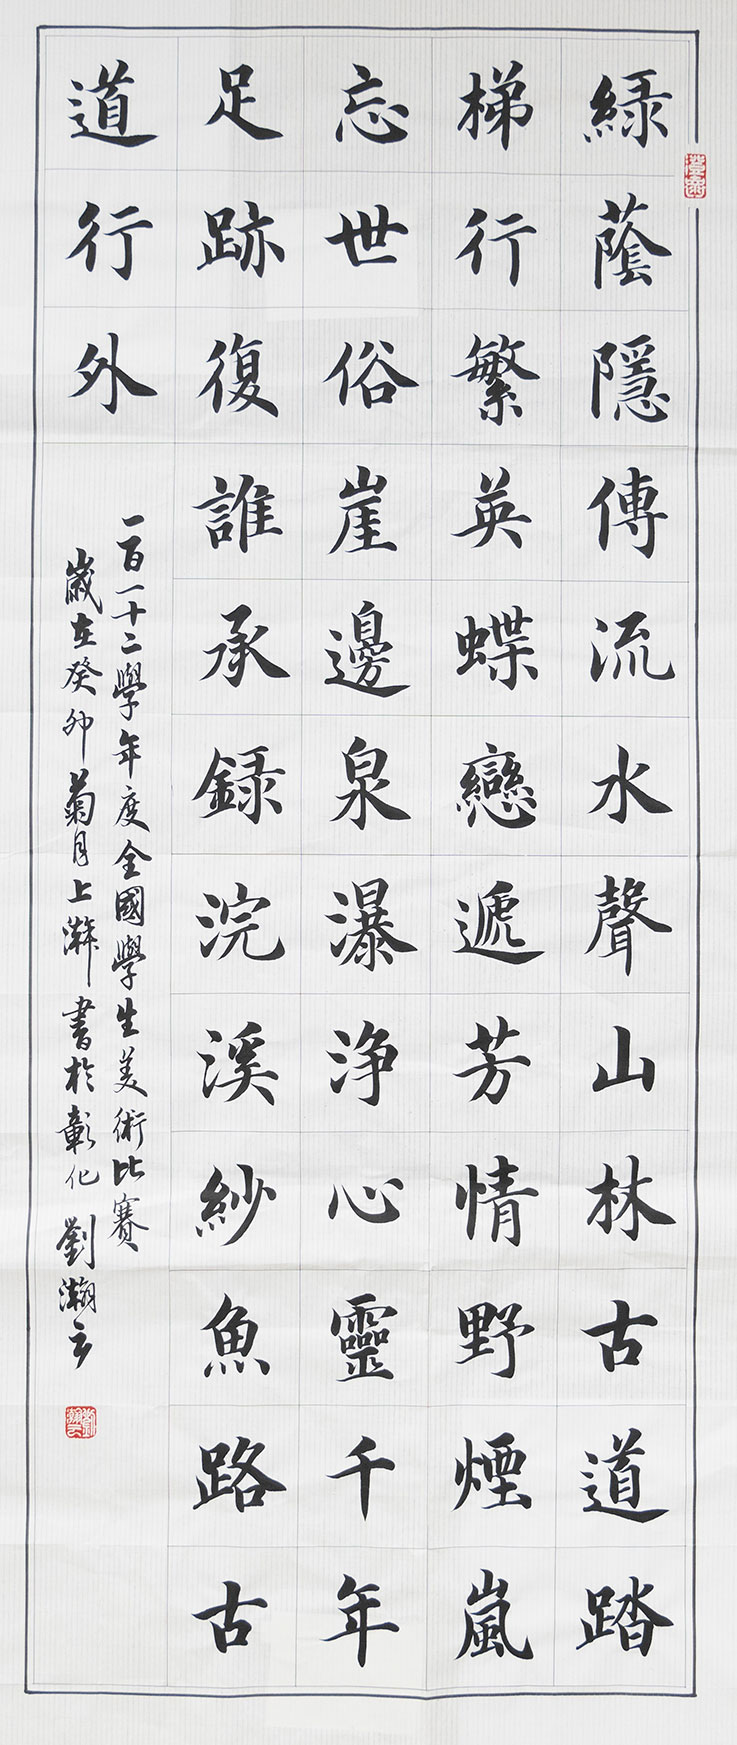 綠蔭隱傳流水聲山林古道踏
梯行繁英蝶戀遞芳情野煙嵐
忘世俗崖邊泉瀑淨心靈千年
足跡復誰承錄浣溪紗魚路古
道行外
一百一十二學年度全國學生美術比賽
歲在癸卯菊月上澣書於彰化劉瀚云